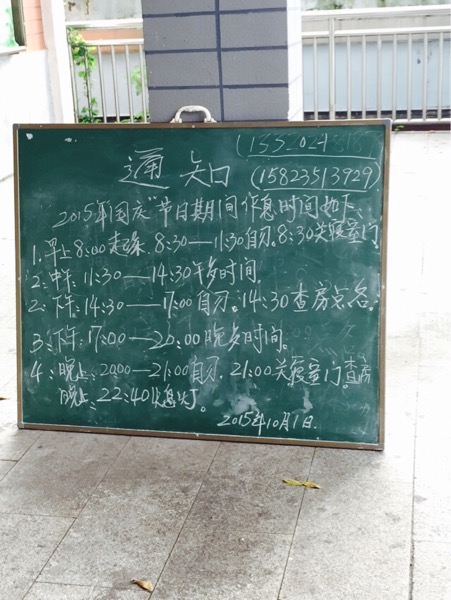 通知
(15823513929)
2015年国庆"节日期间作息时间如下:
1、早上8:00起床 8:30——11:30自习。8:30关寝室门
2:中午:11:30——14:30午歺时间.
2:下午:14:30——17:00自习。14:30查房点名.
3:下午:17:00——20:00晚歺时间。
4:晚上:20:00——21:00自习. 21:00关寝室门.查房
晚上:22:40熄灯。
2015年10月1日.